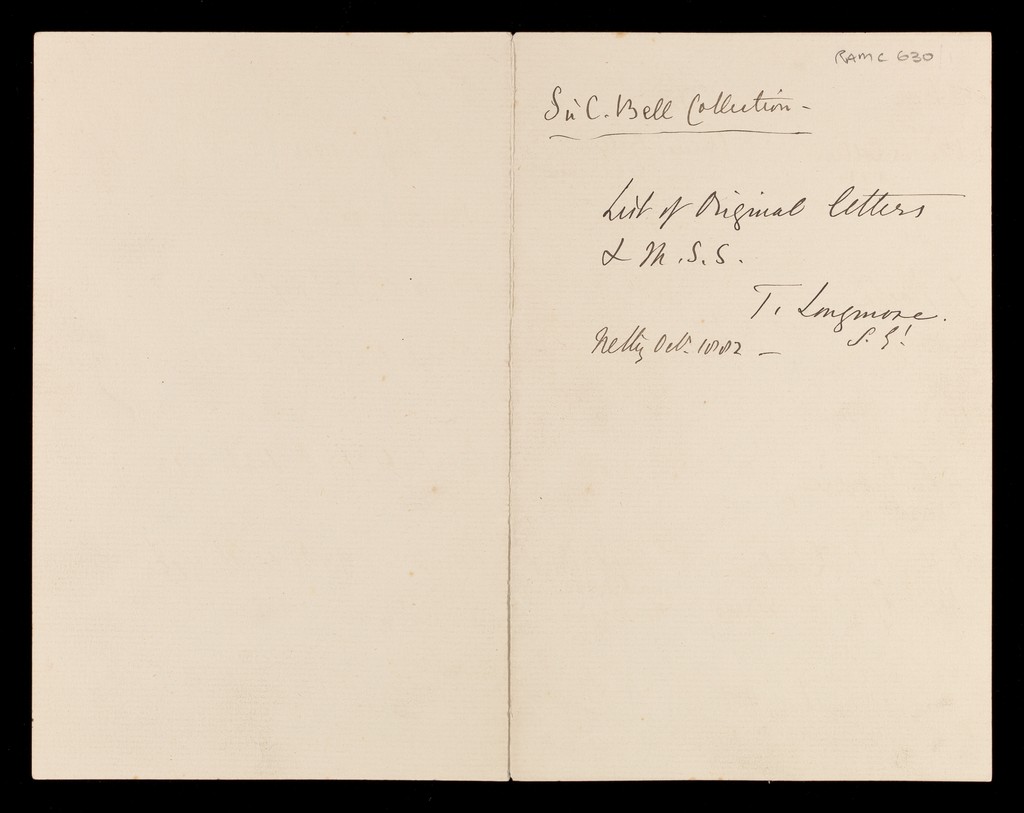 RAMC 630
Sir C. Bell Collection -
List of Original letters
& M.S.S.
T. Longmore.
S. G!
Netley Octr. 1882 —